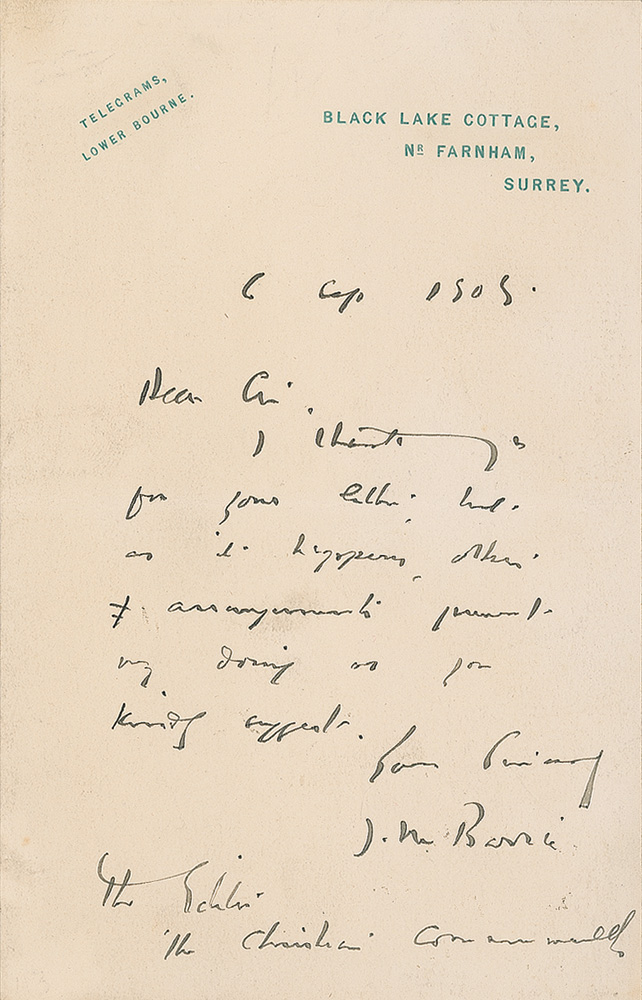 TELEGRAMS,
LOWER BOURNE.
BLACK LAKE COTTAGE,
Nr FARNHAM,
SURREY.
6 Sep 1905.
Dear Sir,
I thank you
for your letter but
as it happens, other
arrangements prevent
my doing as you
kindly suggest.
Yours sincerely
J. M. Barrie
The Editor
The Christian Commonwealth